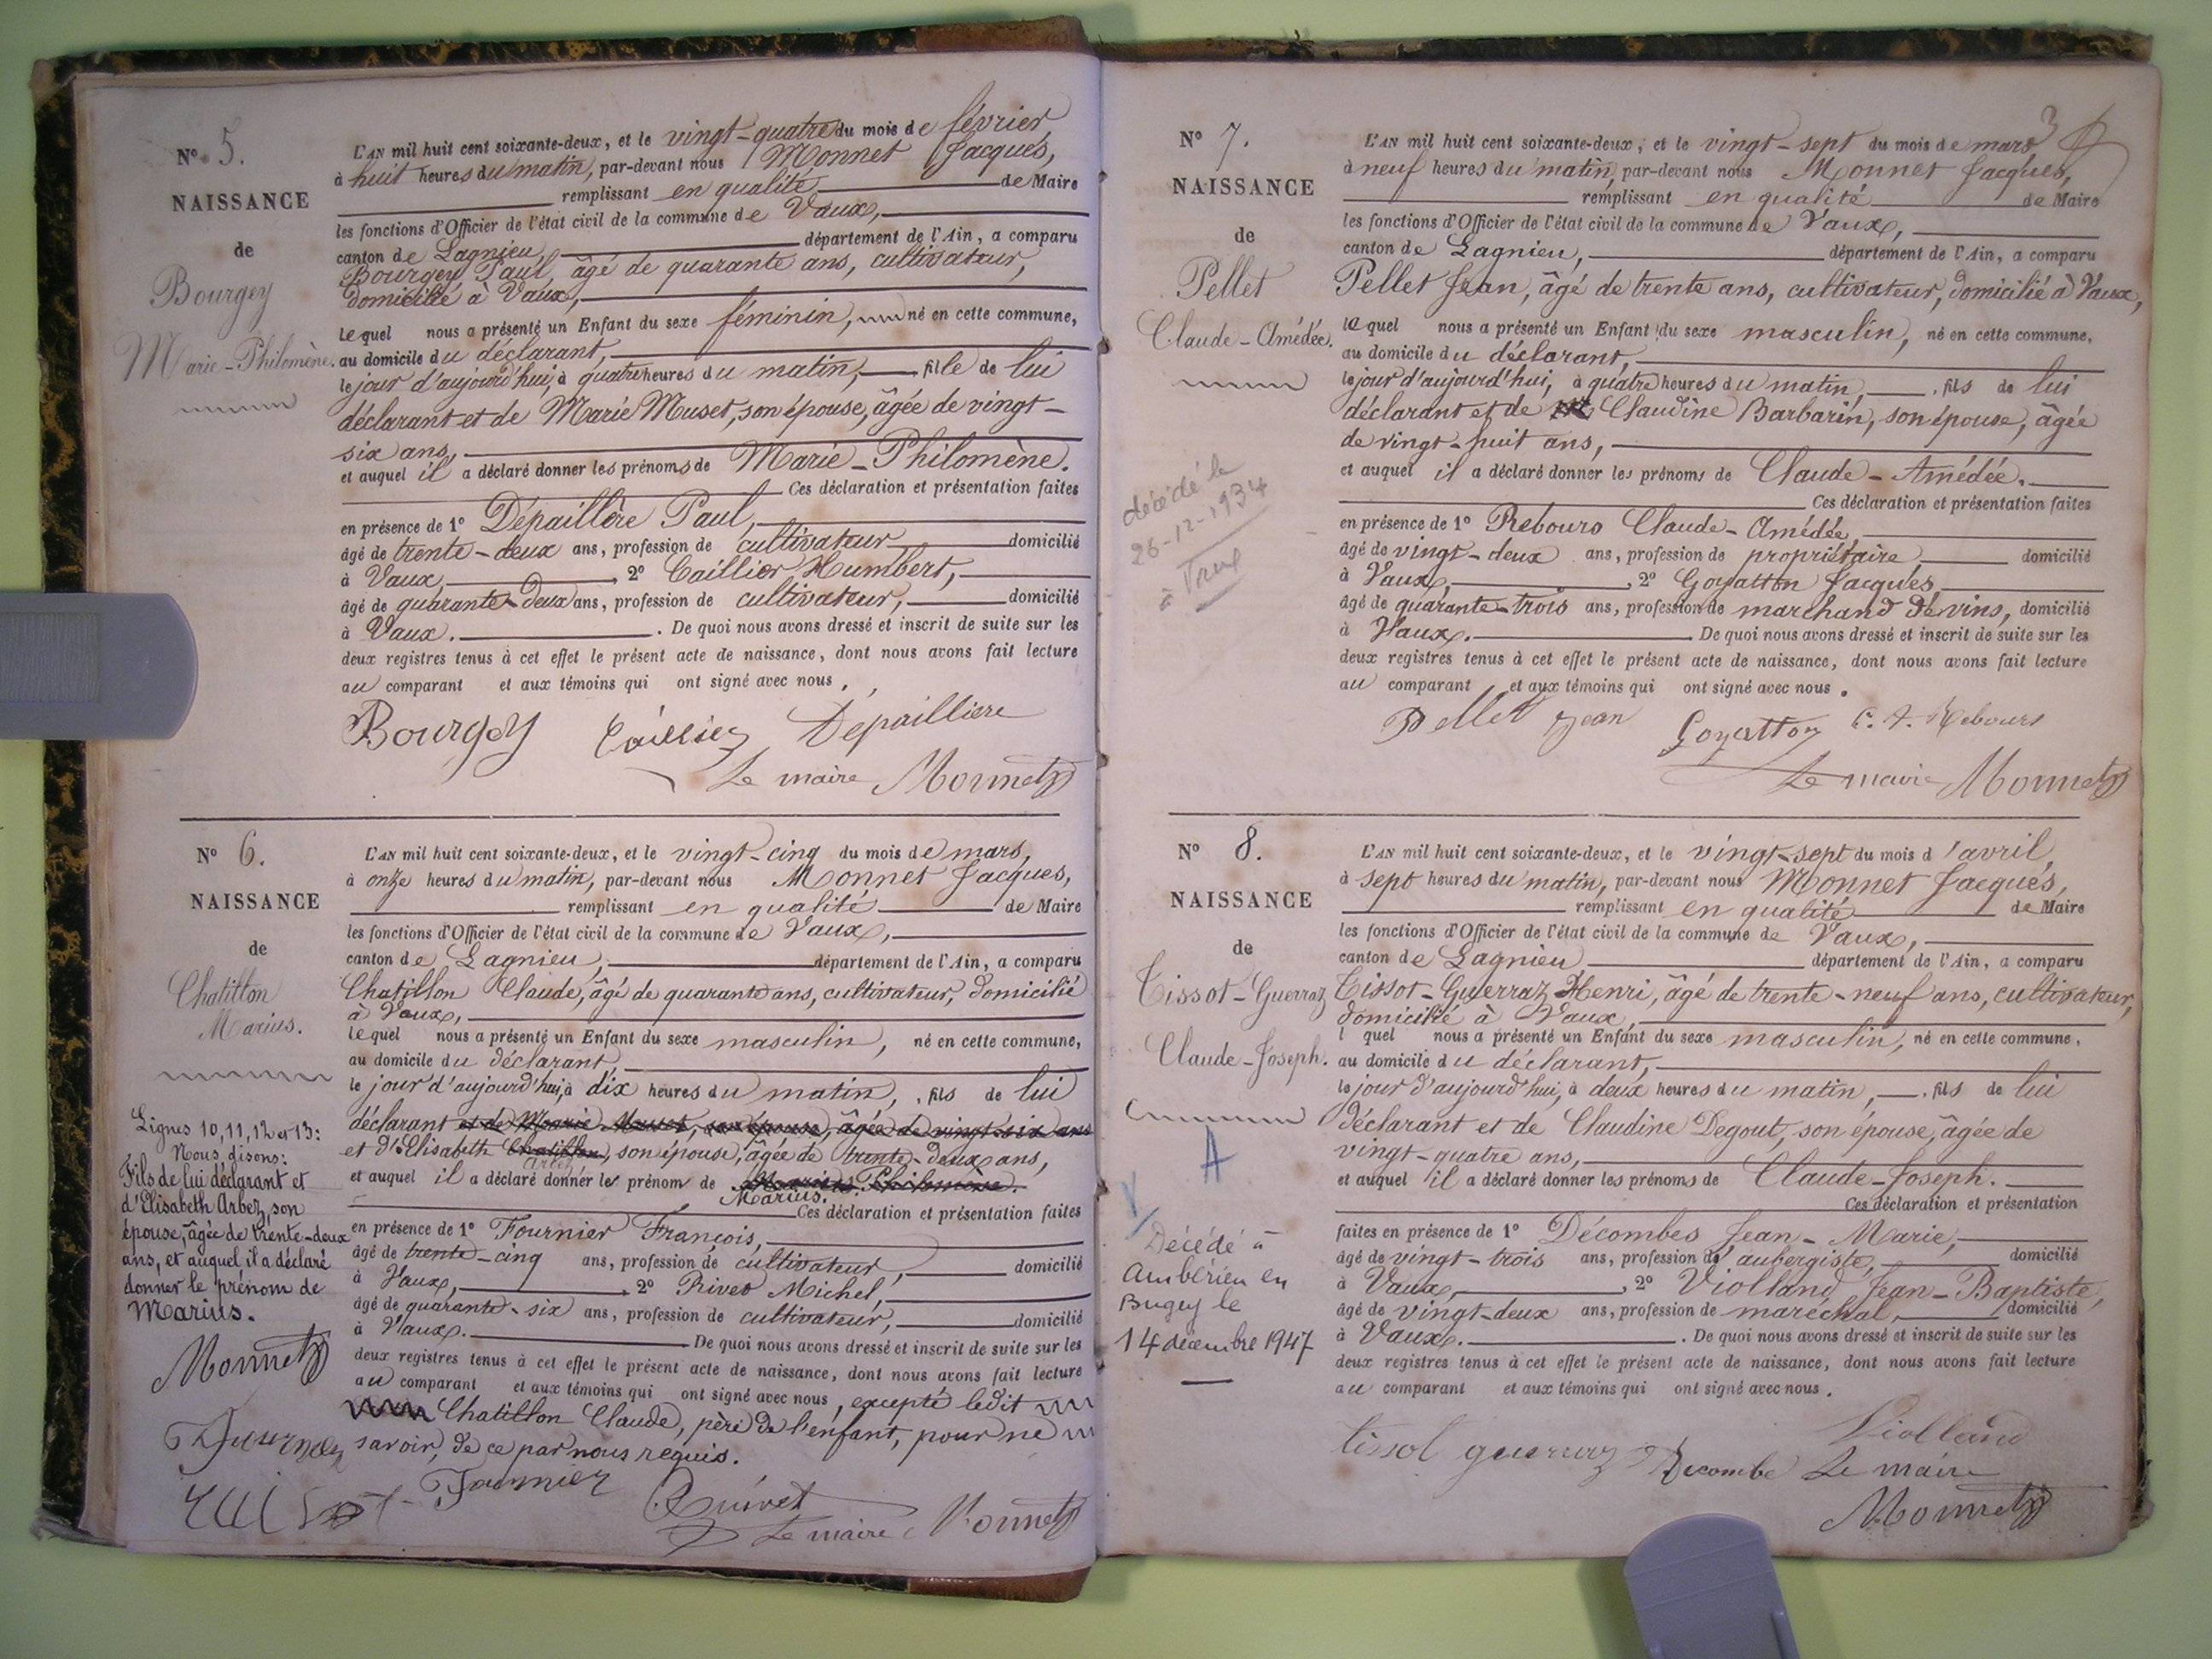 N° 5.
NAISSANCE
de
Bourgey
Marie-Philomène.
L'AN mil huit cent soixante-deux, et le vingt-quatre du mois de février,
à huit heures du matin, par-devant nous Monnet Jacques,
remplissant en qualité de Maire
les fonctions d'Officier de l'état civil de la commune de Vaux,
canton de Lagnieu, département de l'Ain, a comparu
Bourgey Paul, âgé de quarante ans, cultivateur,
domicilié à Vaux,
lequel nous a présenté un Enfant du sexe féminin, né en cette commune,
au domicile du déclarant,
le jour d'aujourd'hui, à quatre heures du matin, fille de lui
déclarant et de Marie Muset, son épouse, âgée de vingt-
six ans,
et auquel il a déclaré donner les prénoms de Marie-Philomène.
Ces déclaration et présentation faites
en présence de 1° Dépaillère Paul,
âgé de trente-deux ans, profession de cultivateur domicilié
à Vaux, 2° Caillier Humbert,
âgé de quarante-deux ans, profession de cultivateur, domicilié
à Vaux. De quoi nous avons dressé et inscrit de suite sur les
deux registres tenus à cet effet le présent acte de naissance, dont nous avons fait lecture
au comparant et aux témoins qui ont signé avec nous.
Bourgey Caillier Depailliere
Le maire Monnet
N° 6.
NAISSANCE
de
Chatillon
Marius.
Lignes 10, 11, 12 et 13:
Nous disons:
Fils de lui déclarant et
d'Elisabeth Arbez, son
épouse, âgée de trente-deux
ans, et auquel il a déclaré
donner le prénom de
Marius.
Monnet
L'AN mil huit cent soixante-deux, et le vingt-cinq du mois de mars,
à onze heures du matin, par-devant nous Monnet Jacques,
remplissant en qualité de Maire
les fonctions d'Officier de l'état civil de la commune de Vaux,
canton de Lagnieu, département de l'Ain, a comparu
Chatillon Claude, âgé de quarante ans, cultivateur, domicilié
à Vaux,
lequel nous a présenté un Enfant du sexe masculin, né en cette commune,
au domicile du déclarant
le jour d'aujourd'hui, à dix heures du matin, fils de lui
déclarant et de Marie Muset, son épouse, âgée de vingt-six ans
et d'Elisabeth Chatillon, son épouse, âgée de trente-deux ans,
Arbez
et auquel il a déclaré donner le prénom de Marie Philomène.
Marius.
Ces déclaration et présentation faites
en présence de 1° Fournier François,
âgé de trente-cinq ans, profession de cultivateur, domicilié
à Vaux, 2° Rivet Michel,
âgé de quarante-six ans, profession de cultivateur, domicilié
à Vaux. De quoi nous avons dressé et inscrit de suite sur les
deux registres tenus à cet effet le présent acte de naissance, dont nous avons fait lecture
au comparant et aux témoins qui ont signé avec nous, excepté ledit
Chatillon Claude, père de l'enfant, pour ne
savoir, de ce par nous requis.
Fournier
Quivet
Le maire Monnet
3
N° 7.
NAISSANCE
de
Pellet
Claude-Amédée.
décédé le
26-12-1934
à
L'AN mil huit cent soixante-deux, et le vingt-sept du mois de mars
à neuf heures du matin, par-devant nous Monnet Jacques,
remplissant en qualité de Maire
les fonctions d'Officier de l'état civil de la commune de Vaux,
canton de Lagnieu, département de l'Ain, a comparu
Pellet Jean, âgé de trente ans, cultivateur, domicilié à Vaux,
lequel nous a présenté un Enfant du sexe masculin, né en cette commune,
au domicile du déclarant,
le jour d'aujourd'hui, à quatre heures du matin, fils de lui
déclarant et de Claudine Barbarin, son épouse, âgée
de vingt-huit ans,
et auquel il a déclaré donner les prénoms de Claude-Amédée.
Ces déclaration et présentation faites
en présence de 1° Rebours Claude-Amédée,
âgé de vingt-deux ans, profession de propriétaire domicilié
à Vaux, 2° Goyatton Jacques,
âgé de quarante-trois ans, profession de marchand de vins, domicilié
à Vaux. De quoi nous avons dressé et inscrit de suite sur les
deux registres tenus à cet effet le présent acte de naissance, dont nous avons fait lecture
au comparant et aux témoins qui ont signé avec nous.
Pellet Jean Goyatton C. A. Rebours
Le maire Monnet
N° 8.
NAISSANCE
de
Tissot-Guerraz
Claude-Joseph.
A
Décédé à
Ambérieu en
Bugey le
14 décembre 1947
L'AN mil huit cent soixante-deux, et le vingt-sept du mois d'avril,
à sept heures du matin, par-devant nous Monnet Jacques,
remplissant en qualité de Maire
les fonctions d'Officier de l'état civil de la commune de Vaux,
canton de Lagnieu département de l'Ain, a comparu
Tissot-Guerraz Henri, âgé de trente-neuf ans, cultivateur,
domicilié à Vaux,
l quel nous a présenté un Enfant du sexe masculin, né en cette commune,
au domicile du déclarant,
le jour d'aujourd'hui, à deux heures du matin, fils de lui
déclarant et de Claudine Degout, son épouse, âgée de
vingt-quatre ans,
et auquel il a déclaré donner les prénoms de Claude-Joseph.
Ces déclaration et présentation
faites en présence de 1° Décombes Jean-Marie,
âgé de vingt-trois ans, profession d'aubergiste, domicilié
à Vaux, 2° Violland Jean-Baptiste,
âgé de vingt-deux ans, profession de maréchal, domicilié
à Vaux. De quoi nous avons dressé et inscrit de suite sur les
deux registres tenus à cet effet le présent acte de naissance, dont nous avons fait lecture
au comparant et aux témoins qui ont signé avec nous.
Violland
tissot guerraz Decombe Le maire
Monnet